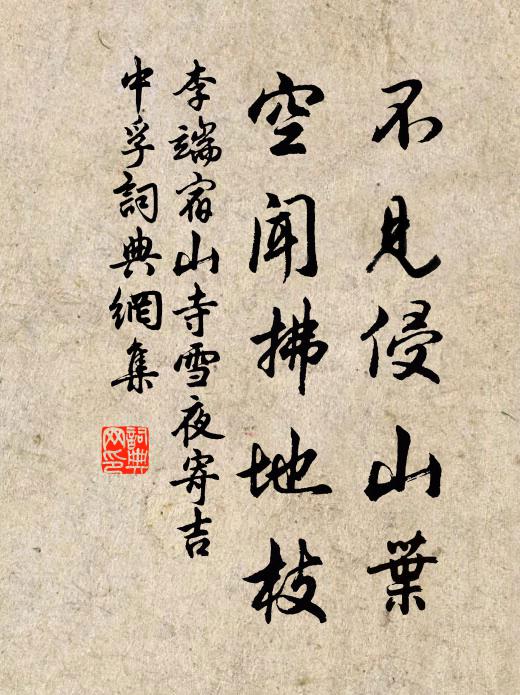 不見侵山葉
空聞拂地枝
李端宿山寺雪夜寄吉
中孚詞典網集
詞典
网印